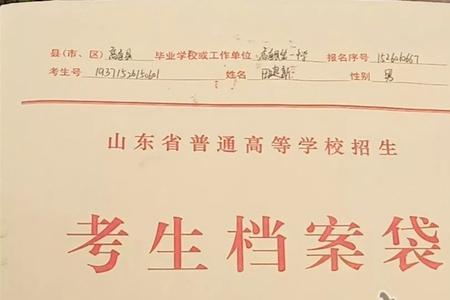 县(市、区) 高唐县 毕业学校或工作单位 高唐县第一中学 报名序号
考生号 姓名 性别 男
山东省普通高等学校招生
考生档案袋